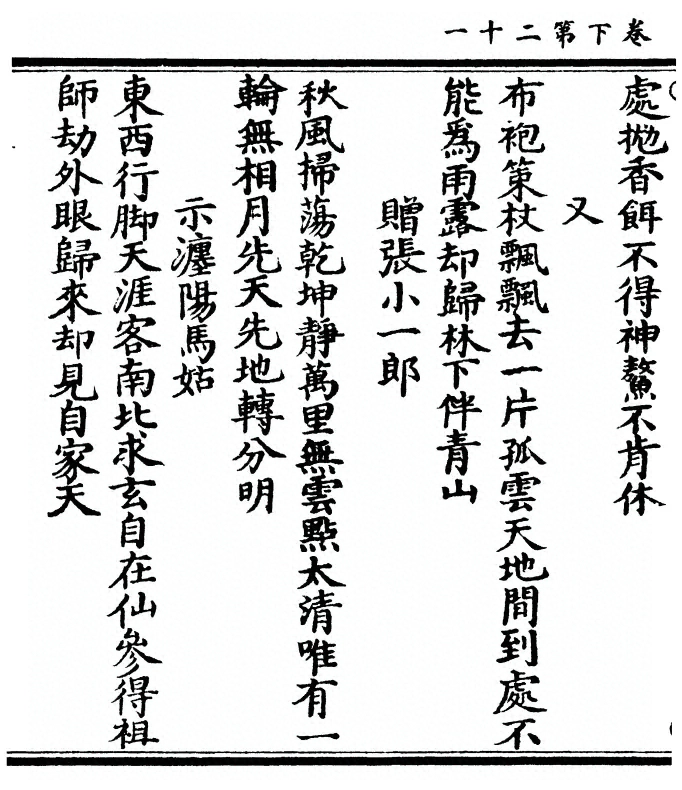 卷下第二十一
處抛香餌不得神鰲不肯休
又
布袍策杖飄飄去一片孤雲天地間到處不
能爲雨露却歸林下伴青山
贈張小一郎
秋風掃蕩乾坤靜萬里無雲點太清唯有一
輪無相月先天先地轉分明
示瀍陽馬姑
東西行脚天涯客南北求玄自在仙參得祖
師劫外眼歸來却見自家天